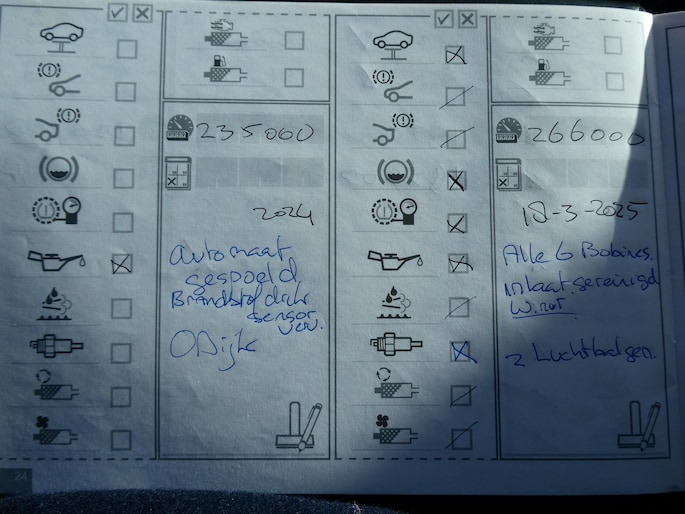 235000
2024
Automaat
gespoeld
Brandstofdruk
sensor
ver.
24
266000
18-3-2025
Alle 6 Bobines.
inlaat gereinigd
2 Luchtbalgen.